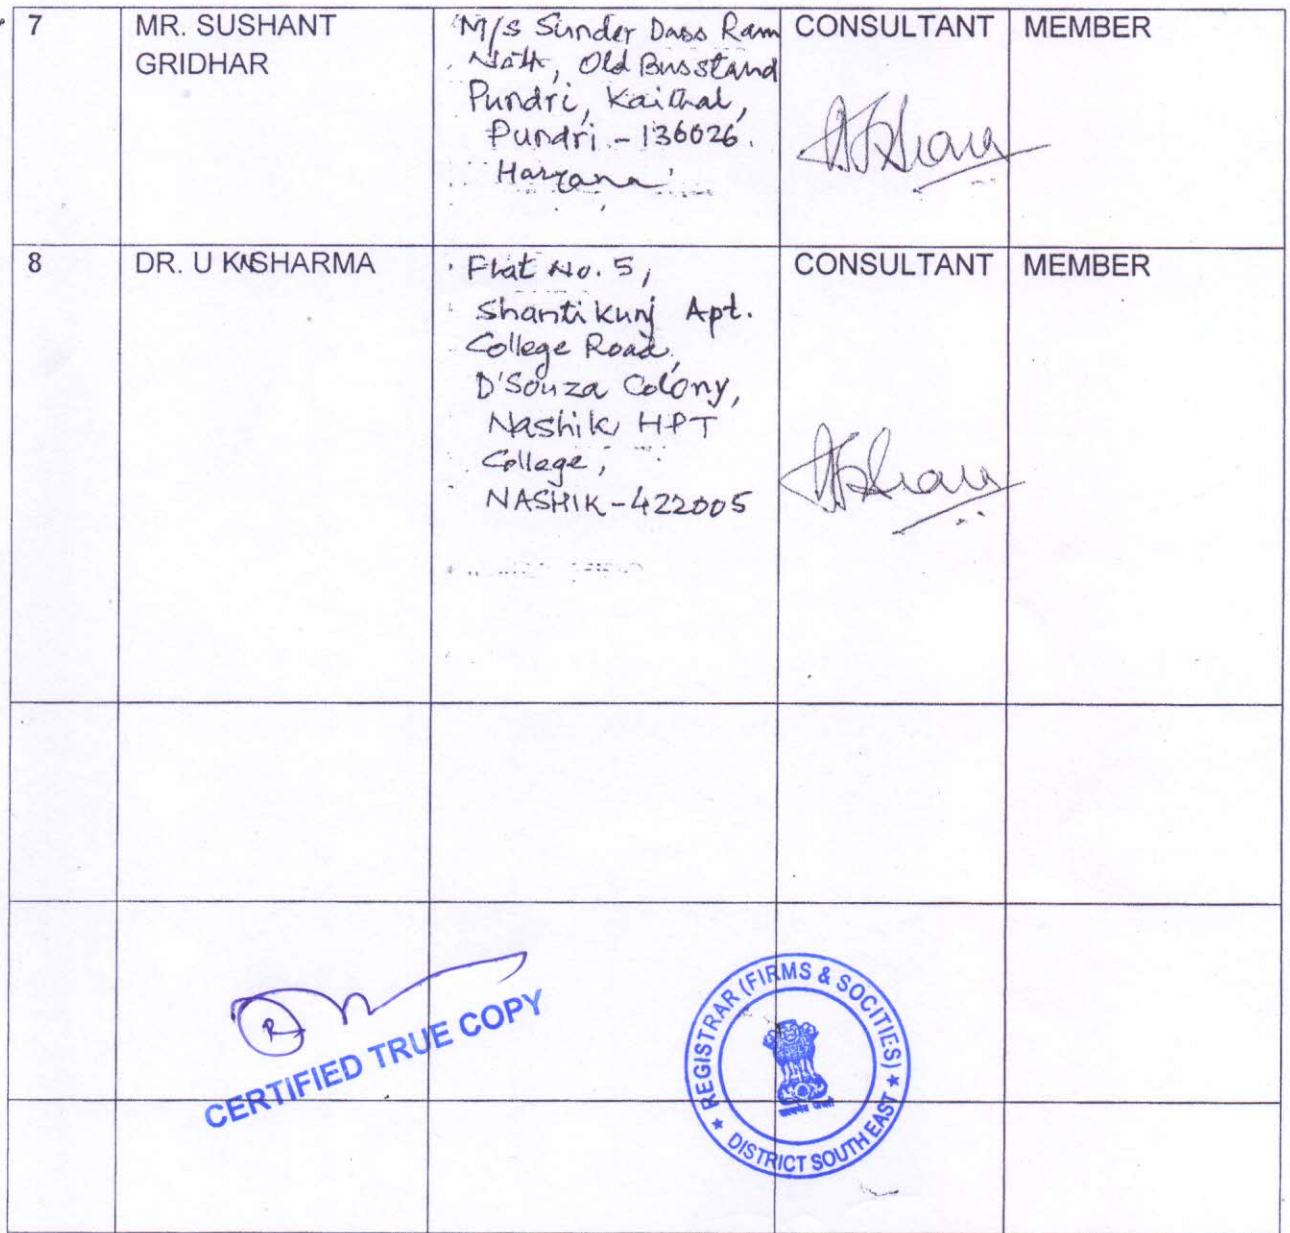 7
MR. SUSHANT
GRIDHAR
M/s Sunder Dass Ram
Nath, Old Busstand
Pundri, Kaithal,
Pundri - 136026.
Haryana
CONSULTANT
MEMBER
8
DR. U K SHARMA
Flat No. 5,
Shanti Kunj Apt.
College Road,
D'Souza Colony,
Nashik, HPT
College,
NASHIK - 422005
CONSULTANT
MEMBER
CERTIFIED TRUE COPY
REGISTRAR (FIRMS & SOCITIES)
★ DISTRICT SOUTH EAST ★